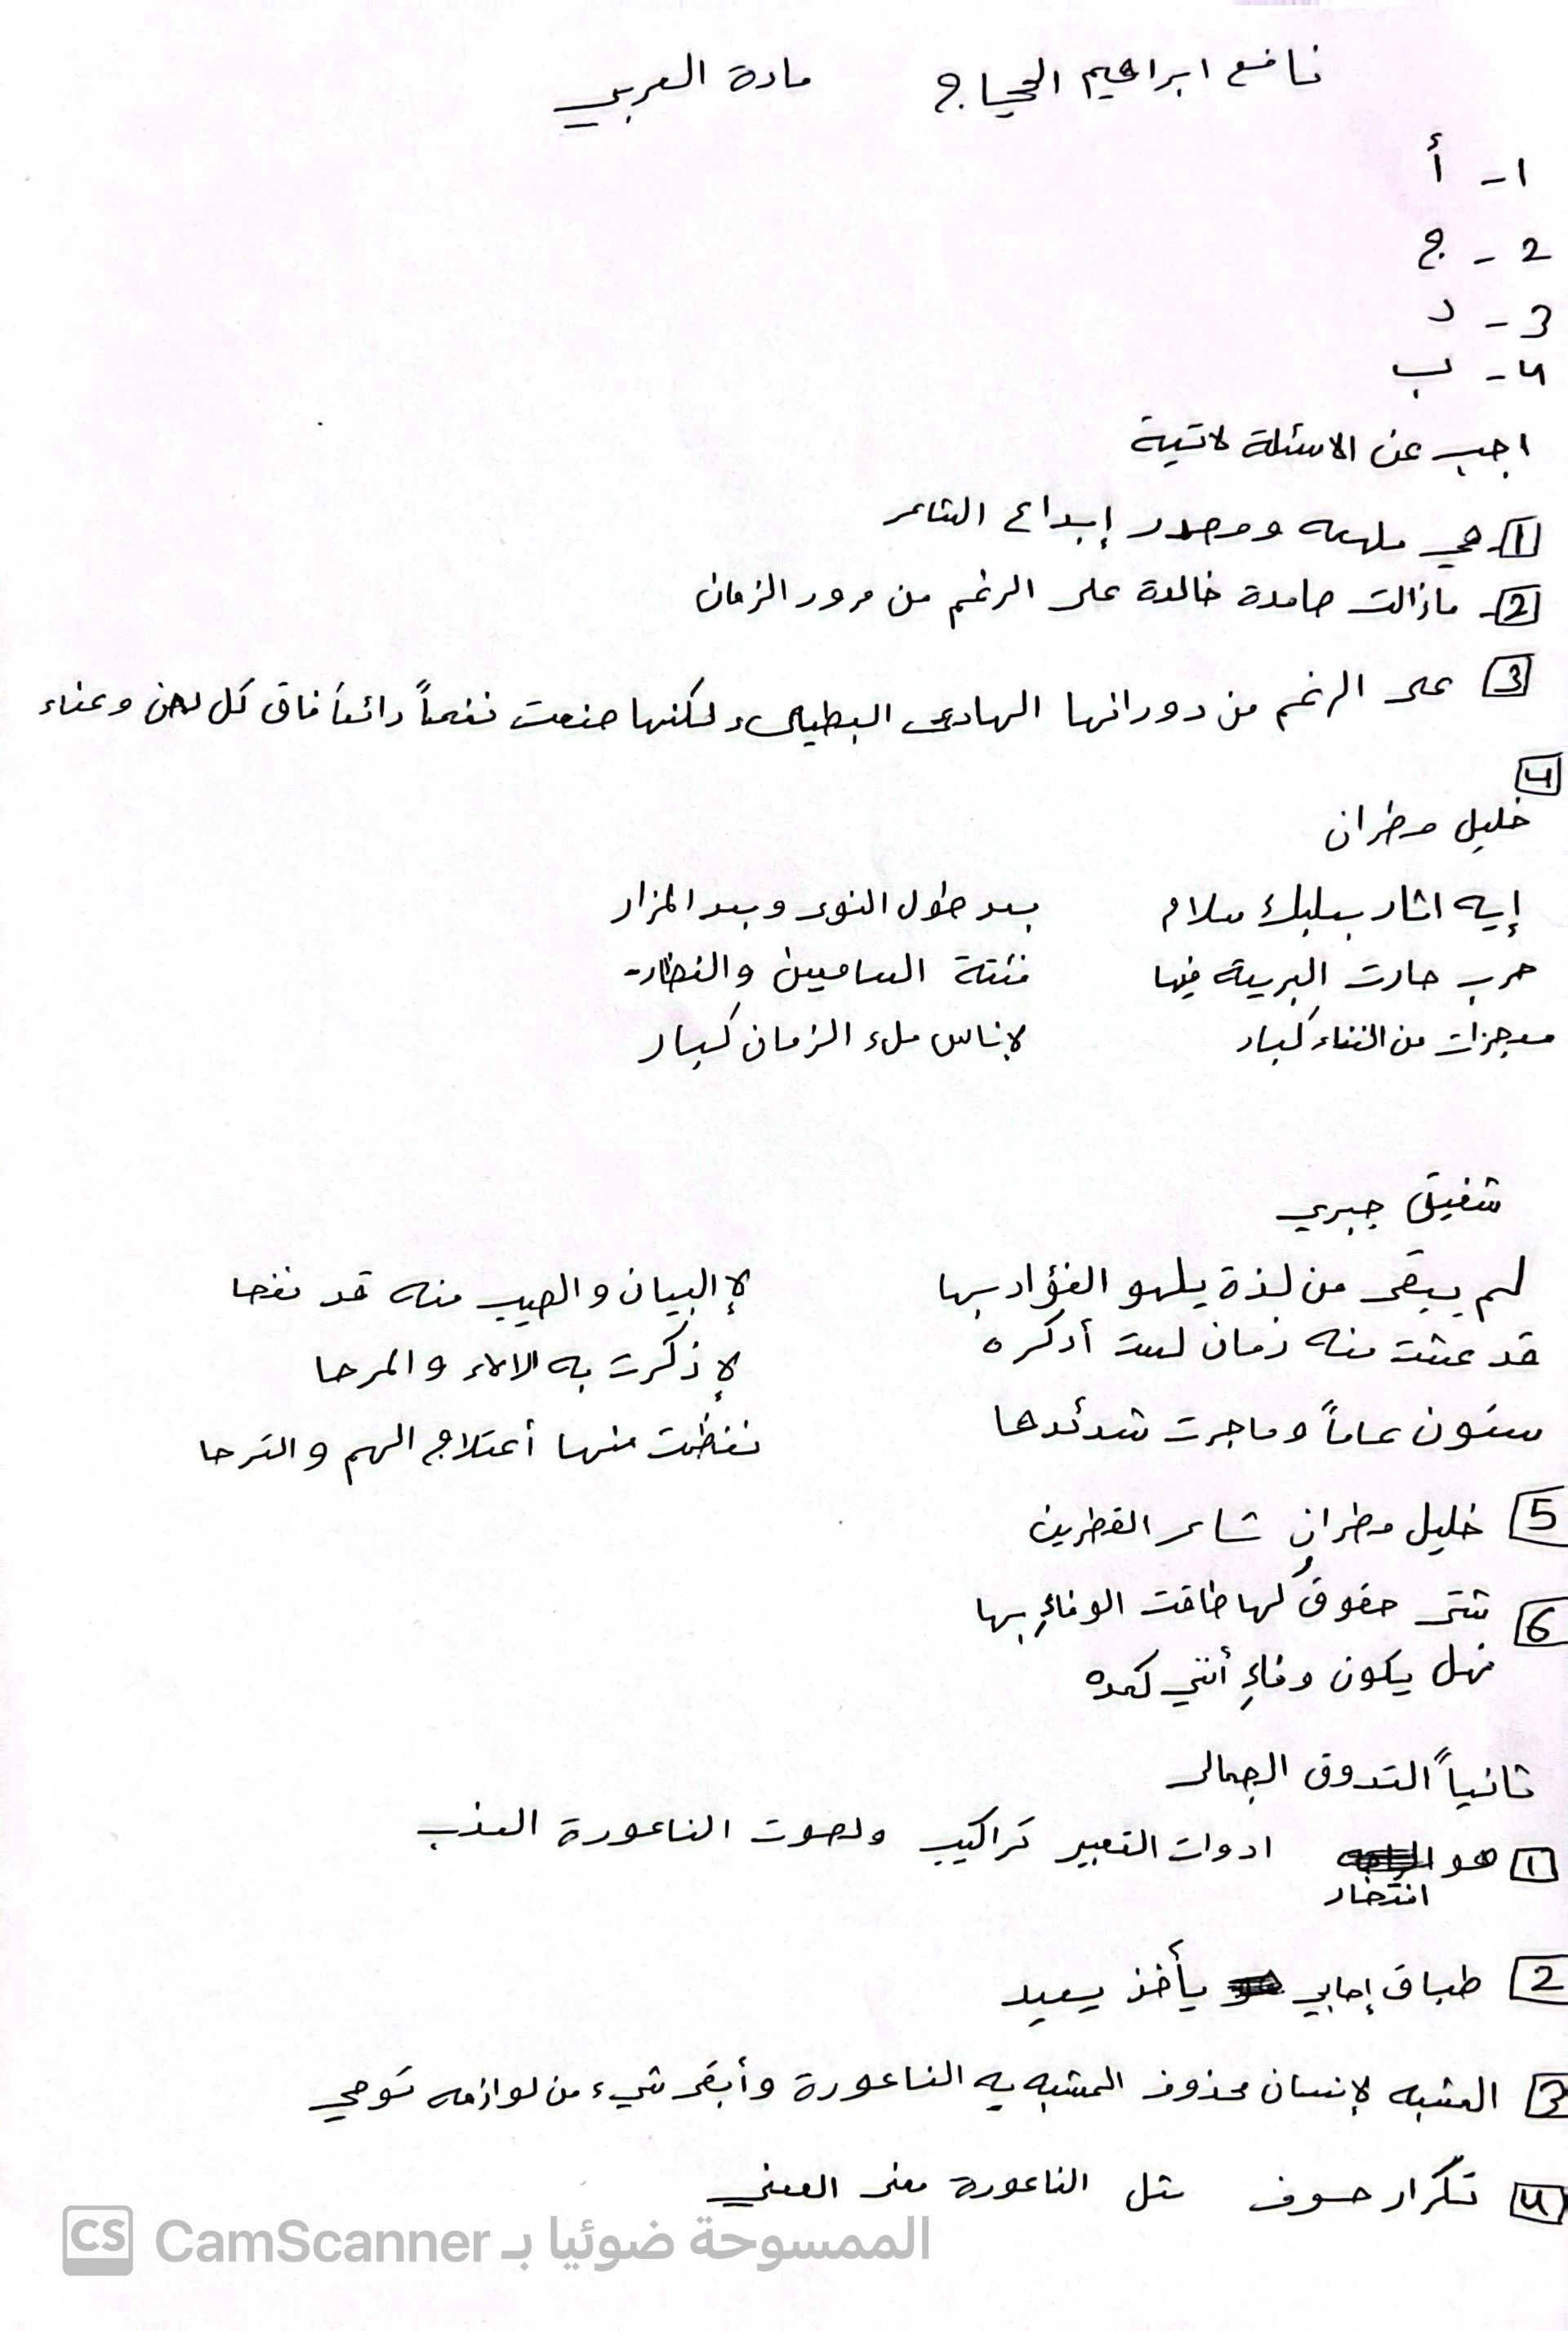 نافع ابراهيم الحجاج مادة العربي
1- أ
2 - ج
3 - د
4- ب
اجب عن الاسئلة لاتية
1- هي ملهمه ومصدر إبداع الشاعر
2- مازالت صامدة خالدة على الرغم من مرور الزمان
3 على الرغم من دورانها الهادئ البطيىء لكنها صنعت نغماً رائعاً فاق كل لحن وغناء
4
خليل مطران
إيه اثار بعلبك سلام بعد طول النوى وبعد المزار
حرب حارت البرية فيها فتنة السامعين والنظار
معجزات من الثناء كبار لإناس ملء الزمان كبار
شفيق جبري
لم يبقى من لذة يلهو الفؤاد بها لإ البيان و الصيب منه قد نفحا
قد عشت منه زمان لست أذكره لإ ذكرت به الالاء و المرحا
ستون عاماً وماجرت شدئدها نفظت منها أعتلاج الهم و الترحا
5 خليل مطران شاعر القطرين
6 شتى حقوقُ لها ضاقت الوفاءِ بها
فهل يكون وفاءِ أنني كمده
ثانياً التدوق الجمالي
1 هو ادوات التعبير تراكيب ولصوت الناعورة العذب
انتخار
2 طباق إجابي يأخذ يعيد
3 المشبه لإنسان محذوف المشبه به الناعورة وأبقى شيء من لوازمه توحي
4 تكرار حروف مثل الناعورة معنى المعني
الممسوحة ضوئيا بـ CamScanner
CS